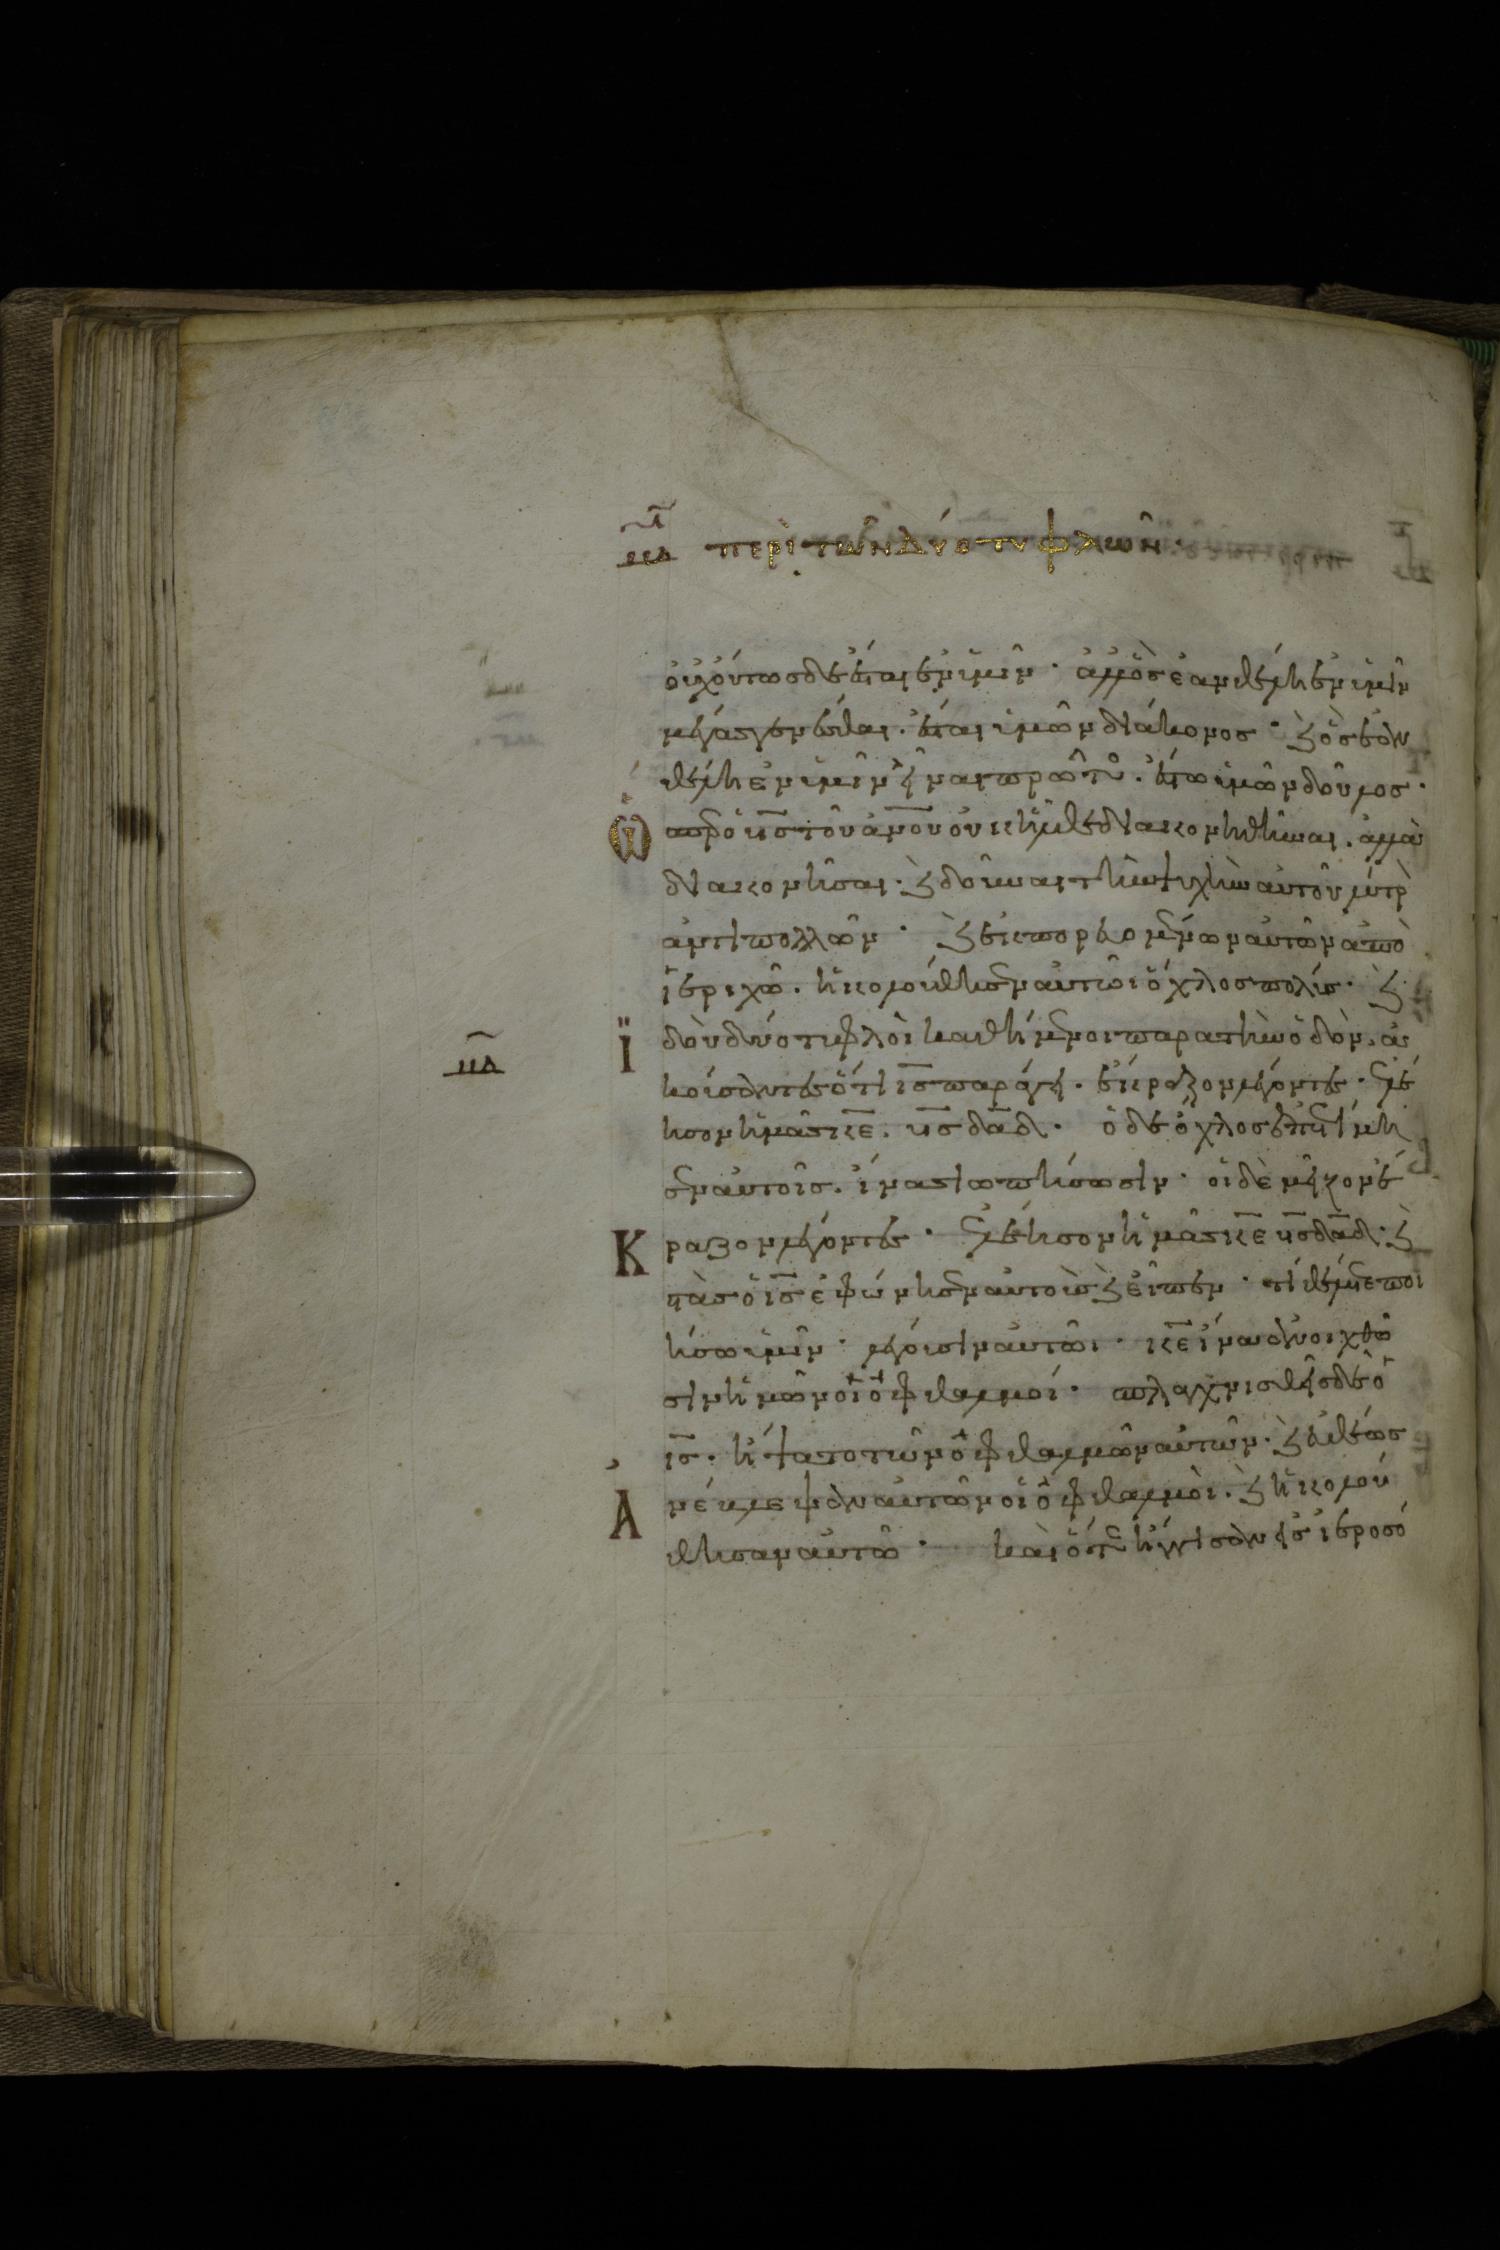 μδ περὶ τῶν δύο τυφλῶν·
οὐχ οὕτως δὲ ἔσται ἐν ὑμῖν· ἀλλ' ὃς ἐὰν θέλη ἐν ὑμῖν
μέγας γενέσθαι. ἔσται ὑμῶν διάκονος· καὶ ὃς ἐὰν
θέλη ἐν ὑμῖν εἶναι πρῶτος. ἔστω ὑμῶν δοῦλος·
Ὥσπερ ὁ υ̅ς̅ τοῦ α̅ν̅ο̅υ̅ οὐκ ἦλθε διακονηθῆναι. ἀλλὰ
διακονῆσαι· καὶ δοῦναι τὴν ψυχὴν αὐτοῦ λύτρον
ἀντὶ πολλῶν· καὶ ἐκπορευομένων αὐτῶν ἀπὸ
ἱεριχῶ. ἠκολούθησεν αὐτῶι ὄχλος πολύς· καὶ
Ἰδοὺ δύο τυφλοὶ καθήμενοι παρὰ τὴν ὁδὸν. ἀ
μδ
κούσαντες ὅτι ι̅ς̅ παράγει. ἔκραξον λέγοντες· ἐλέ
ησον ἡμᾶς κ̅ε̅. υ̅ς̅ δ̅α̅δ̅· ὁ δὲ ὄχλος ἐπετίμη
σεν αὐτοῖς. ἵνα σιωπήσωσιν· οἱ δὲ μεῖζον ἔ
Κραζον λέγοντες· ἐλέησον ἡμᾶς κ̅ε̅ υ̅ς̅ δ̅α̅δ̅· καὶ
στὰς ὁ ι̅ς̅ ἐφώνησεν αὐτοὺς καὶ εἶπεν· τί θέλετε ποι
ήσω ὑμῖν· λέγουσιν αὐτῶι· κ̅ε̅ ἵνα ἀνοιχθῶ
σιν ἡμῶν οἱ ὀφθαλμοί· σπλαγχνισθεὶς δὲ ὁ
ι̅ς̅. ἥψατο τῶν ὀφθαλμῶν αὐτῶν· καὶ εὐθέως
Ἀνέβλεψαν αὐτῶν οἱ ὀφθαλμοὶ. καὶ ἠκολού
θησαν αὐτῶ· καὶ ὅτε ἤγγισαν εἰς ἱεροσό